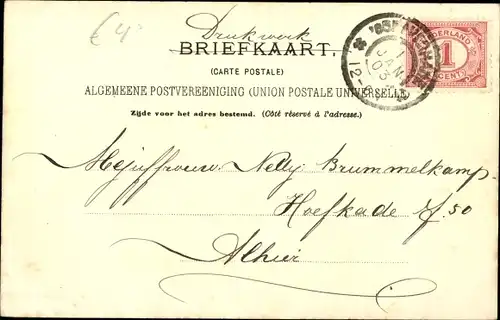 € 4
Drukwerk
BRIEFKAART.
(CARTE POSTALE)
ALGEMEENE POSTVEREENIGING (UNION POSTALE UNIVERSELLE)
Zijde voor het adres bestemd. (Côté réservé à l'adresse.)
'S GRAVENHAGE
1 JAN 03
12-
NEDERLAND
1
CENT
Mejuffrouw Nelly Brummelkamp.
Hoefkade 50
Alhier